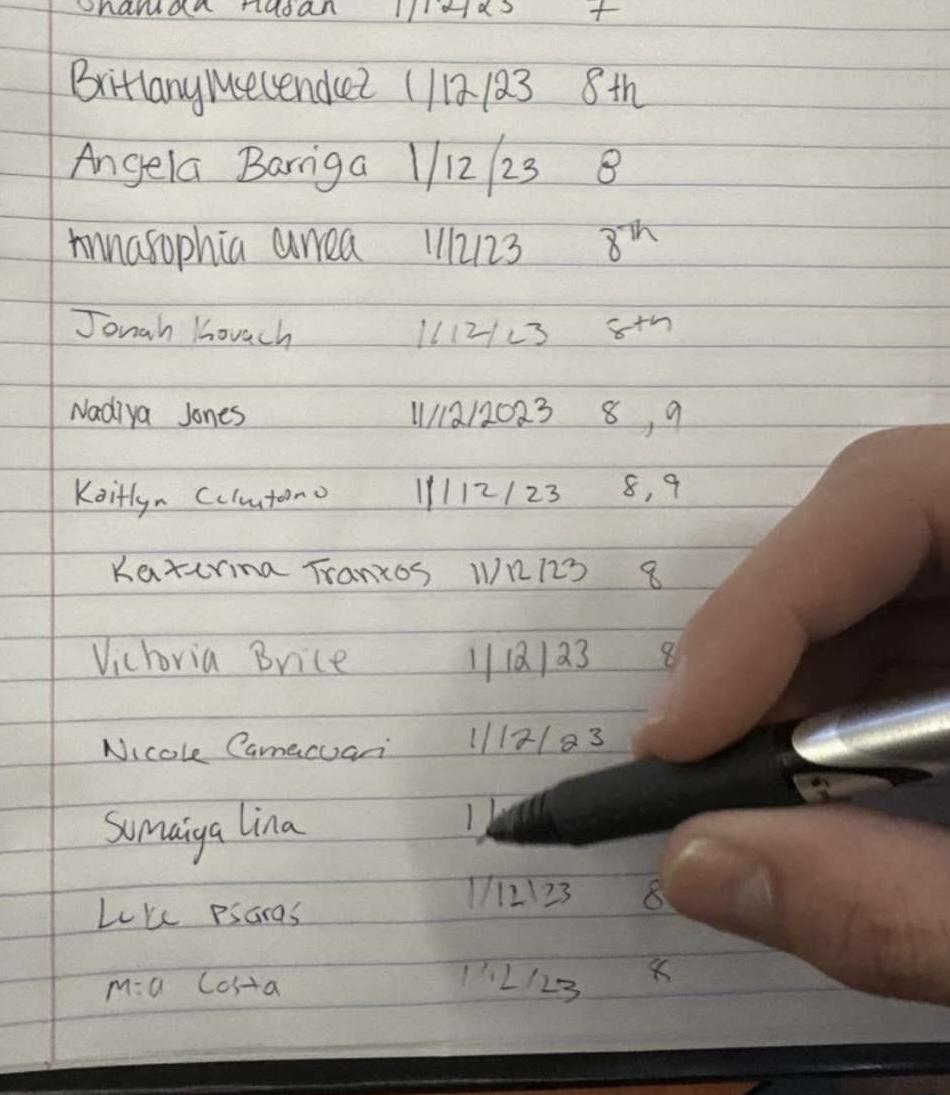 Hasan 1/12/23 7
Brittany Melendez 1/12/23 8th
Angela Barriga 1/12/23 8
Annasophia urrea 1/12/23 8th
Jonah Kovach 1/12/23 8th
Nadiya Jones 11/12/2023 8, 9
Kaitlyn 11/12/23 8,9
Katerina Tranxos 11/12/23 8
Victoria Brice 1/12/23 8
Nicole 1/12/23
Sumaiya lina 1/
Luke Psaras 1/12/23 8
Mia Costa 1/12/23 8